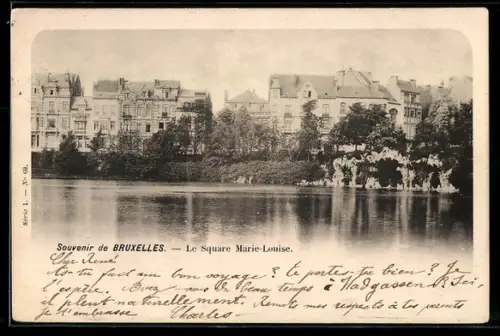 Série 1. — No 69.
Souvenir de BRUXELLES. — Le Square Marie-Louise.
Cher René
As-tu fait un bon voyage? te portes-tu bien? Je
l'espère. Avez-vous de beau temps à Wadgassen?
il pleut naturellement. Remets mes respects à tes parents
Je t'embrasse Charles-